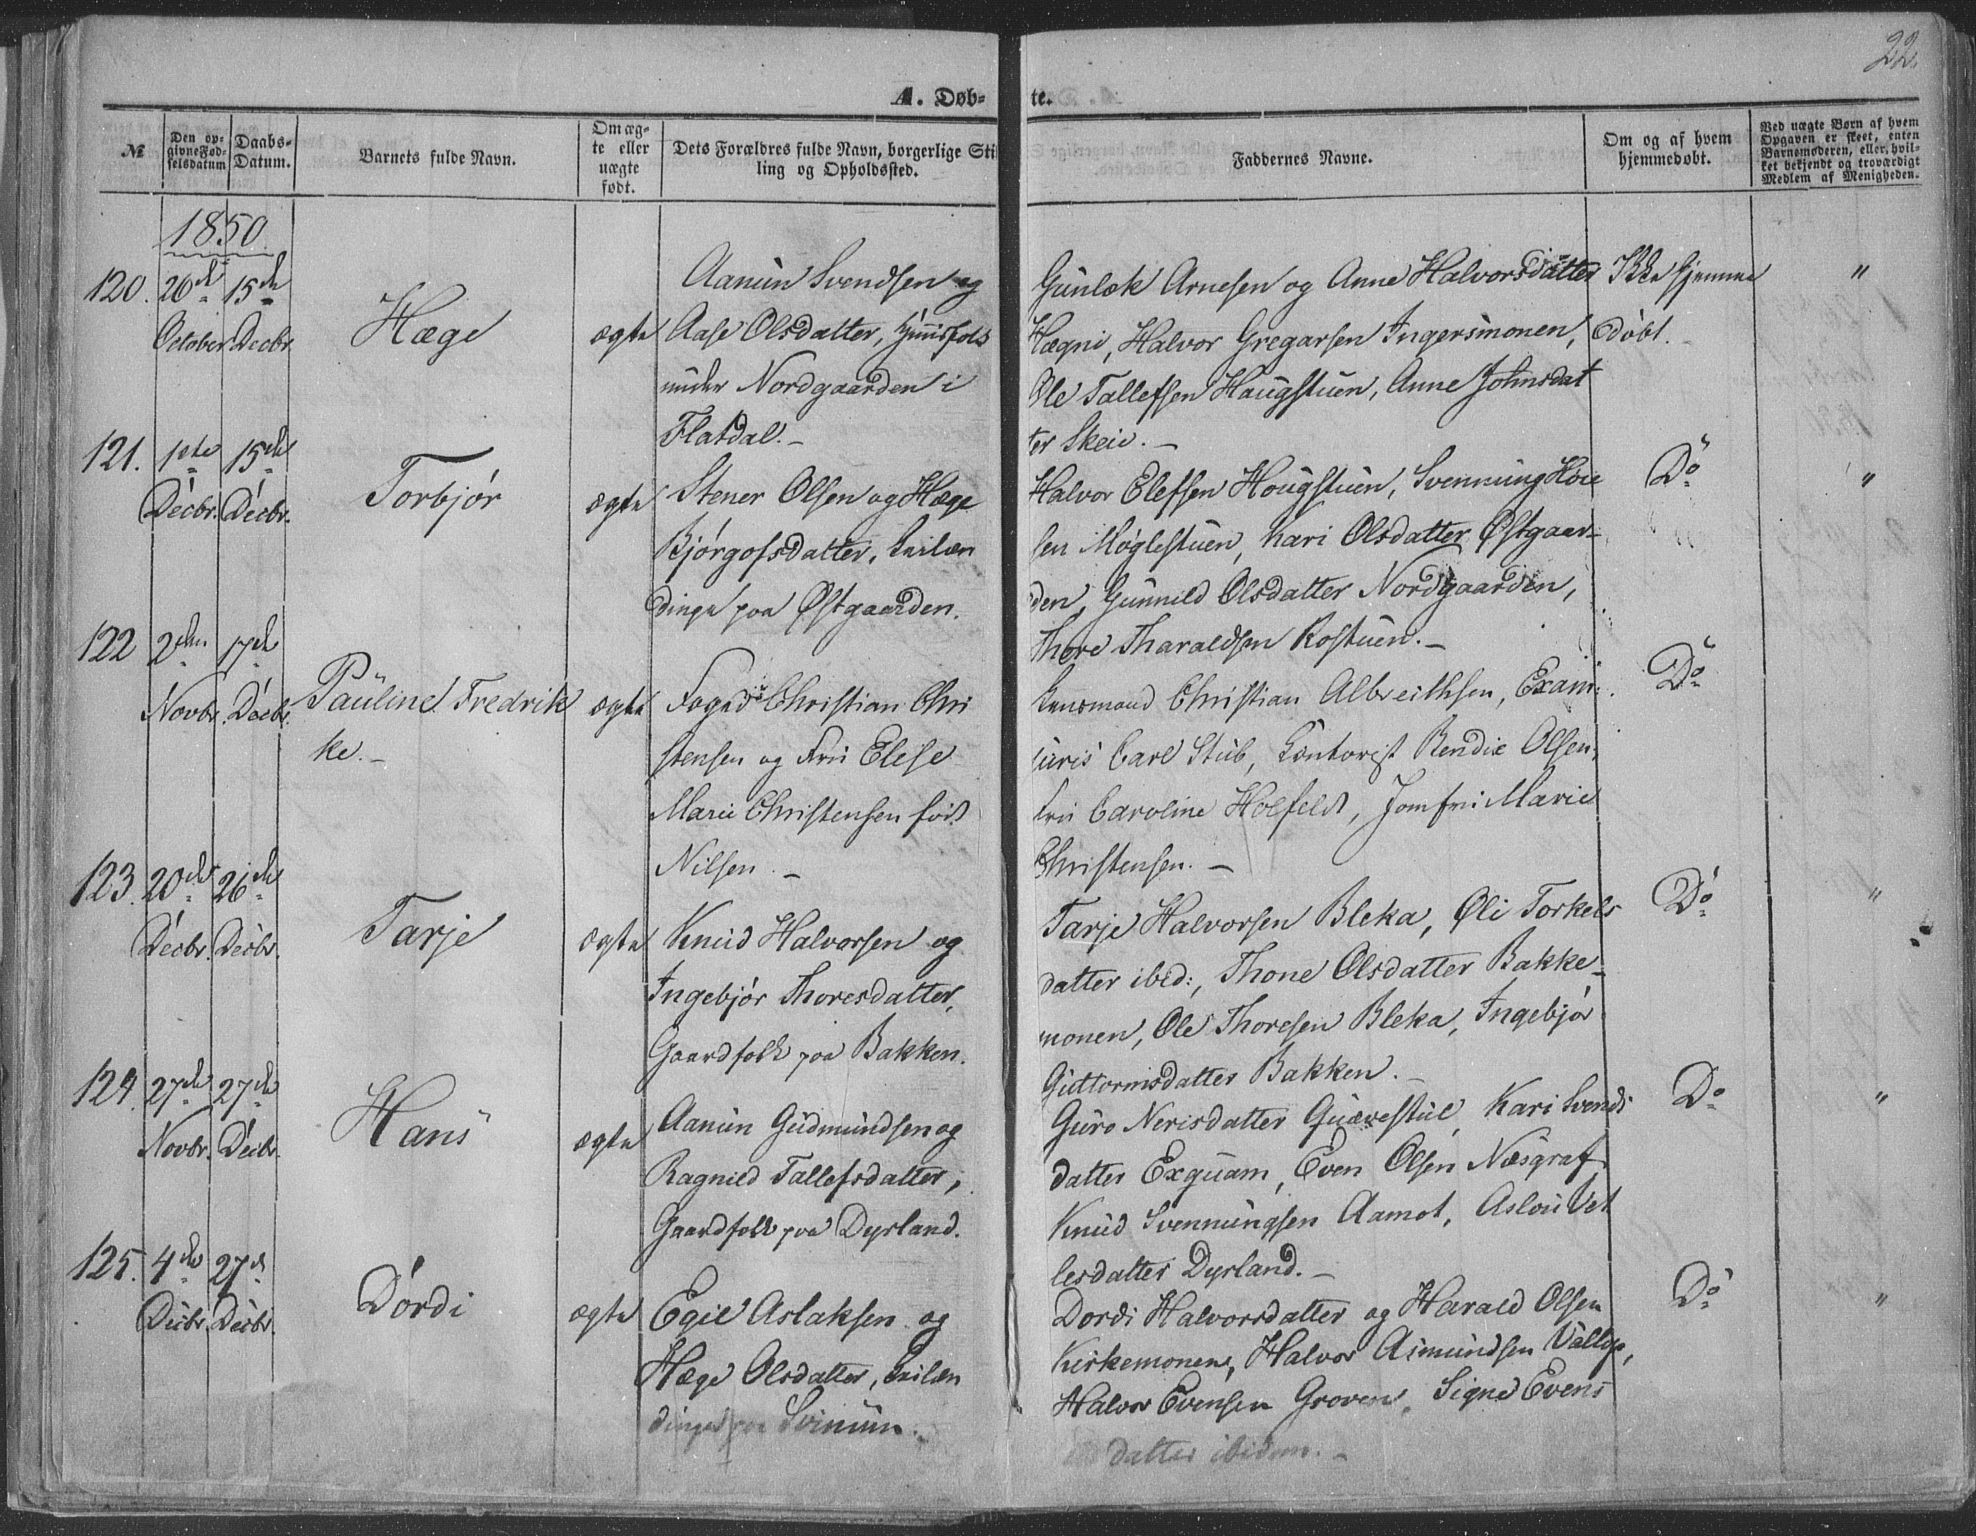 22.
A. Døb-
te.
№
Den op-
givne Fød-
selsdatum
Daabs-
Datum.
Barnets fulde Navn.
Om æg-
te eller
uægte
født.
Dets Forældres fulde Navn, borgerlige Stil-
ling og Opholdssted.
Faddernes Navne.
Om og af hvem
hjemmedøbt.
Ved uægte Børn af hvem
Opgaven er skeet, enten
Barnemoderen, eller hvil-
ket bekjendt og troværdigt
Medlem af Menigheden.
1850
120. 26de October 15de Decbr.
Hæge
ægte
Aanun Svendsen og
Aase Olsdatter, Huusfolk
under Nordgaarden i
Flatdal.-
Gunlek Arnesen og Anne Halvorsdatter
Hægni, Halvor Gregarsen Ingersmonen,
Ole Tallefsen Haugstuen, Anne Johnsdat
ter Skeie.-
Ikke hjemme
døbt.-
"
121. 1ste Decbr. 15de Decbr.
Torbjør
ægte
Stener Olsen og Hæge
Bjørgofsdatter, Leilæn
dinge paa Østgaarden.
Halvor Elefsen Hougstuen, Svennung
sen Møglestuen, Kari Olsdatter Østgaar-
den, Gunnild Olsdatter Nordgaarden,
Thore Tharaldsen Rostuen.-
Do
"
122 2den Novbr. 17de Decbr.
Pauline Fredrik
ke.-
ægte
Foged Christian Chri
stensen og Fru Elese
Marie Christensen født
Nilsen.-
Lensmand Christian Albreithsen, Exam:
juris Carl Stub, Contorist Bendix Olsen,
Fru Caroline Holfeldt, Jomfru Marie
Christensen.-
Do
123. 20de Decbr. 26de Decbr.
Tarje
ægte
Knud Halvorsen og
Ingebjør Thoresdatter,
Gaardfolk paa Bakken.
Tarje Halvorsen Bleka, Øli Torkels
datter ibid:, Thone Olsdatter Bakke-
monen, Ole Thoresen Bleka, Ingebjør
Guttormsdatter Bakken.-
Do
"
124. 27de Novbr. 27de Decbr.
Hans
ægte
Aanun Gudmundsen og
Ragnild Tallefsdatter,
Gaardfolk paa Dyrland.
Guro Nerisdatter Quævestul, Kari Svends
datter Exquam, Even Olsen Næsgraf
Knud Svennungsen Aamot, Aslou Vet
lesdatter Dyrland.-
Do
"
125. 4de Decbr. 27de Decbr.
Dørdi
ægte
Egil Aslaksen og
Hæge Olsdatter, Leilæn
dinge paa Svinum.
Dordi Halvorsdatter og Harald Olsen
Kirkemonen, Halvor Asmundsen Vallø,
Halvor Evensen Groven, Signe Evens
datter ibidem.-
Do
"